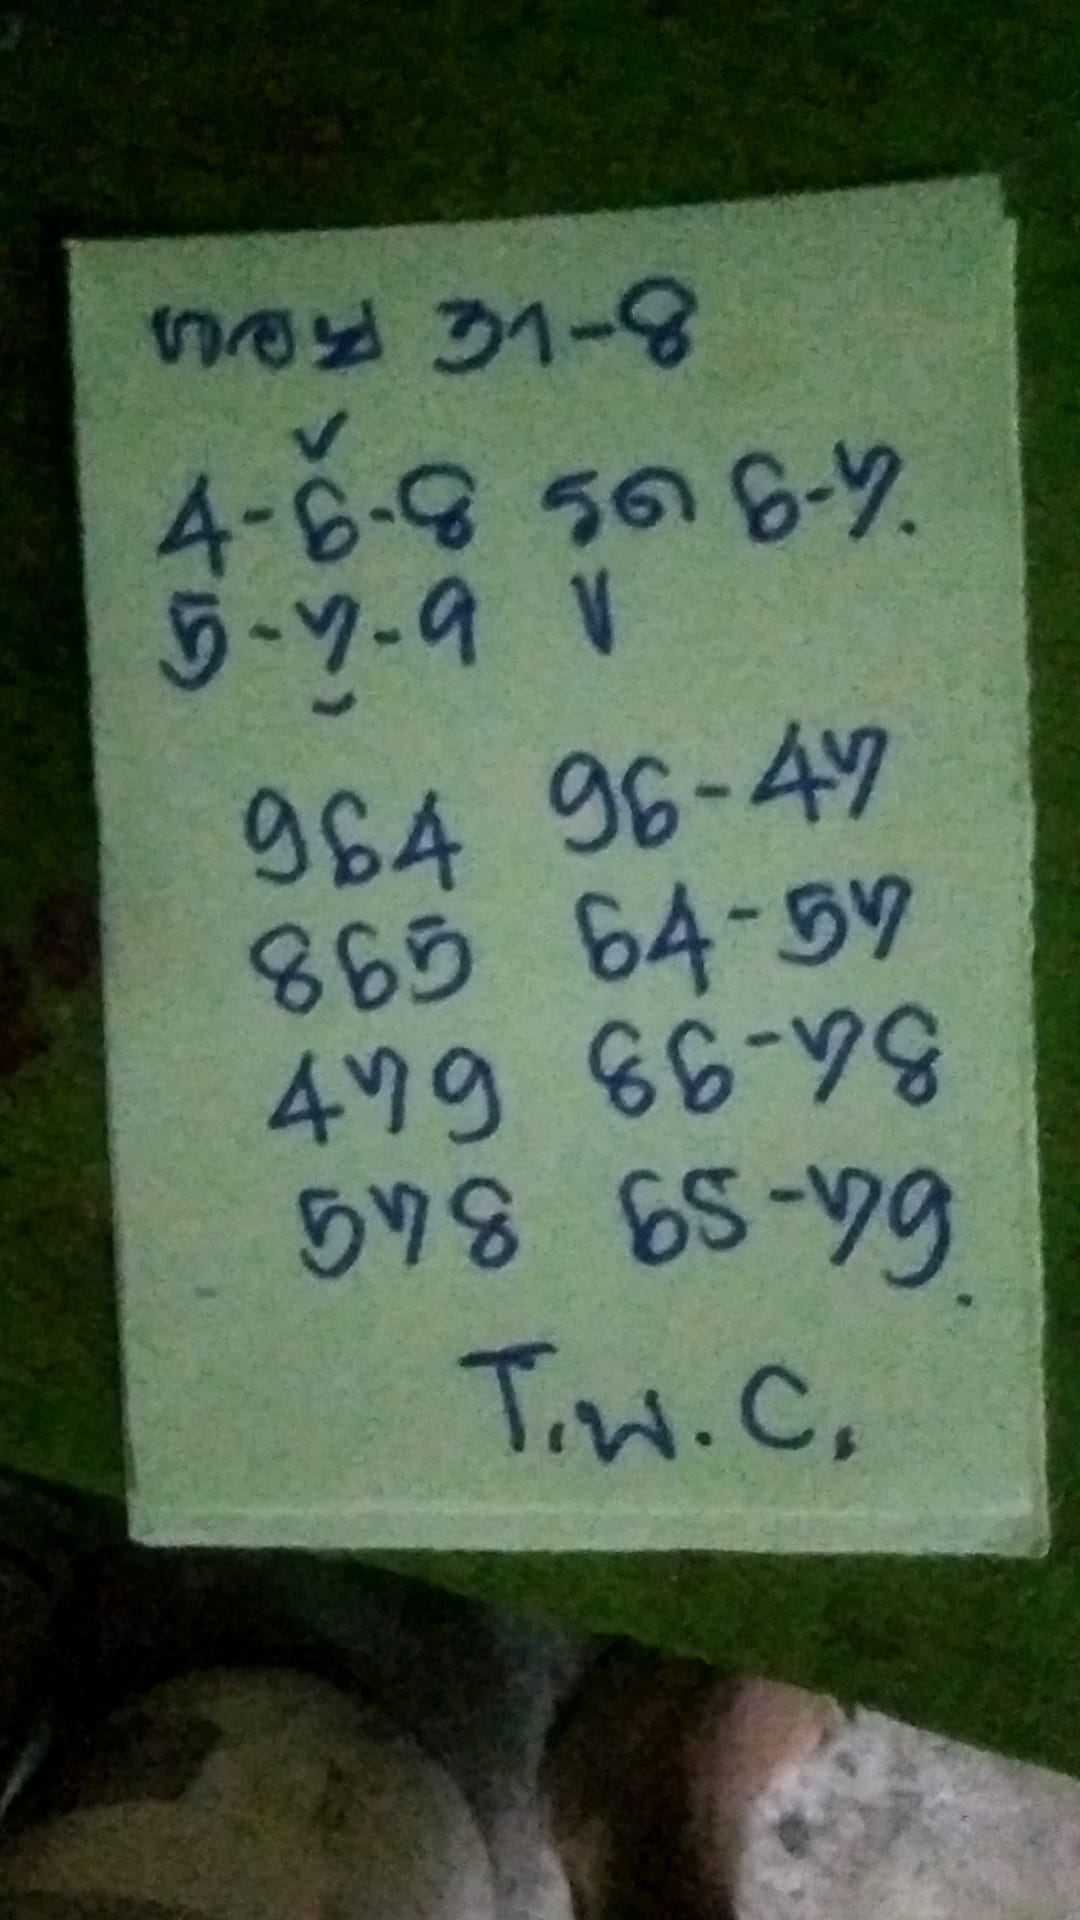 ทอย 31-8
4-6-8 รูด 6-7.
5-7-9 V
964 96-47
865 64-57
479 86-78
578 65-79.
T.W.C.